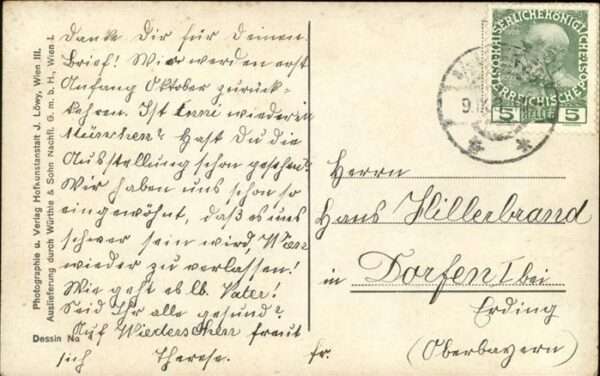 Danke Dir für Deinen
Brief! Wir werden erst
Anfang Oktober zurück-
kehren. Ist Anni wieder in
München? Hast Du die
Ausstellung schon gesehen?
Wir haben uns schon so
eingewöhnt, daß es uns
schwer sein wird, Wien
wieder zu verlassen!
Wie geht es lb. Vater!
Seid Ihr alle gesund?
Auf Wiedersehen freut
sich Therese.
fr.
Photographie u. Verlag Hofkunstanstalt J. Löwy, Wien III.
Auslieferung durch Würthle & Sohn Nachfl. G. m. b. H., Wien I.
Dessin No
KAISERLICHE KÖNIGLICHE
ÖSTERREICHISCHE POST
5 HELLER 5
9.IX
Herrn
Hans Hillerbrand
in Dorfen I bei
Erding
(Oberbayern)